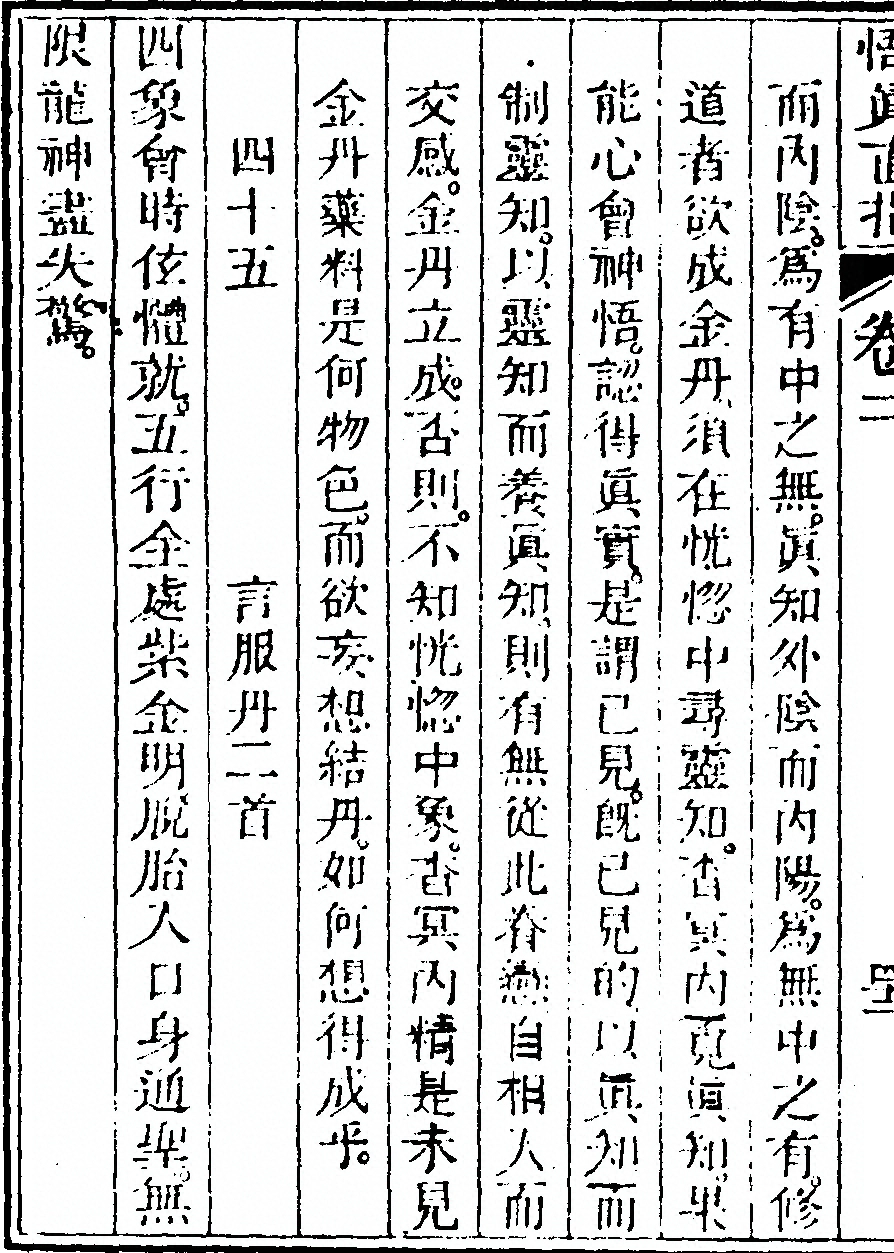 悟真直指 卷二
而內陰。為有中之無。真知外陰而內陽。為無中之有。修
道者欲成金丹、須在恍惚中尋靈知。杳冥內覓真知。果
能心會神悟。認得真實。是謂已見。既已見的以真知而
制靈知。以靈知而養真知、則有無從此眷戀自相入而
交感。金丹立成。否則。不知恍惚中象。杳冥內精是未見
金丹藥料是何物色。而欲妄想結丹。如何想得成乎。
四十五 言服丹二首
四象會時㚻體就。五行全處紫金明脫胎入口身通聖。無
限龍神盡失驚。